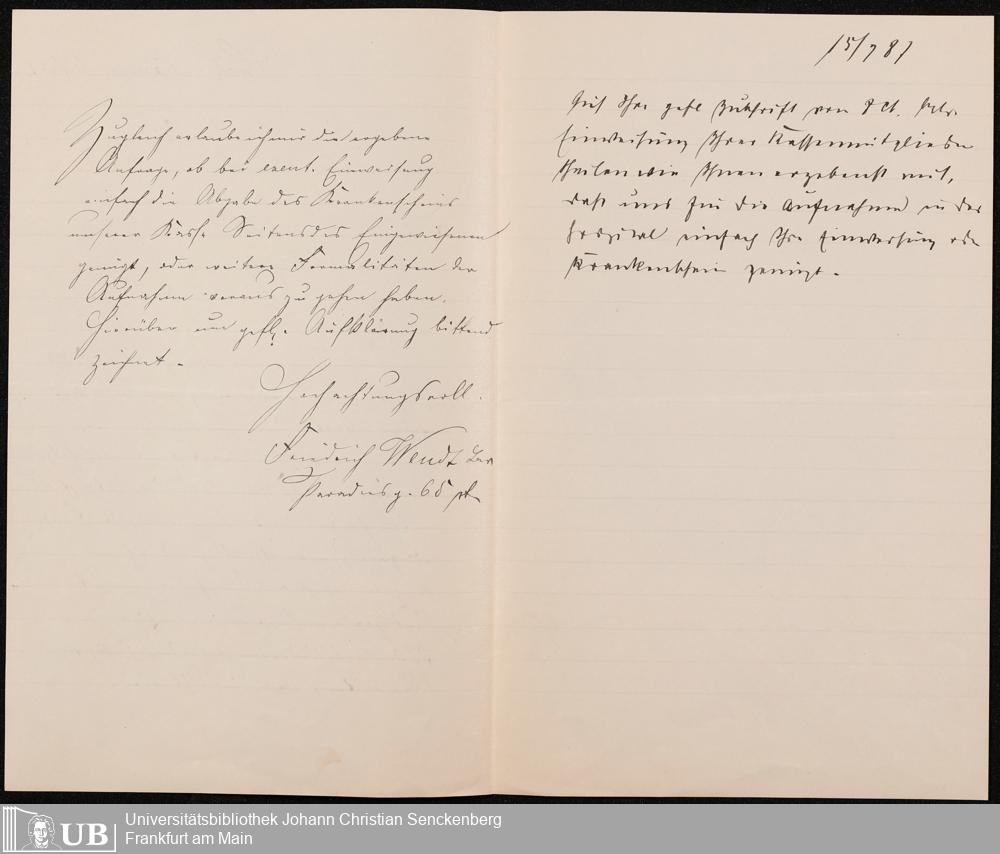 Zugleich erlaube ich mir die ergebene
Anfrage, ob bei event. Einweisung
einfach die Abgabe des Krankenscheins
unserer Kasse Seitens des Eingewiesenen
genügt, oder weitere Formalitäten der
Aufnahme voraus zu gehen haben.
Hierüber um gefl. Aufklärung bittend
zeichnet
Hochachtungsvoll.
Friedrich Wendt
Paradiesg. 65
15/7 87
Auf Ihre gefl Zuschrift von 8 ct.
Einweisung Ihrer Kassenmitglieder
theilen wir Ihnen ergebenst mit,
daß uns für die Aufnahme in das
Hospital einfach Ihre Einweisung oder
Krankenschein genügt.
Universitätsbibliothek Johann Christian Senckenberg
UB
Frankfurt am Main